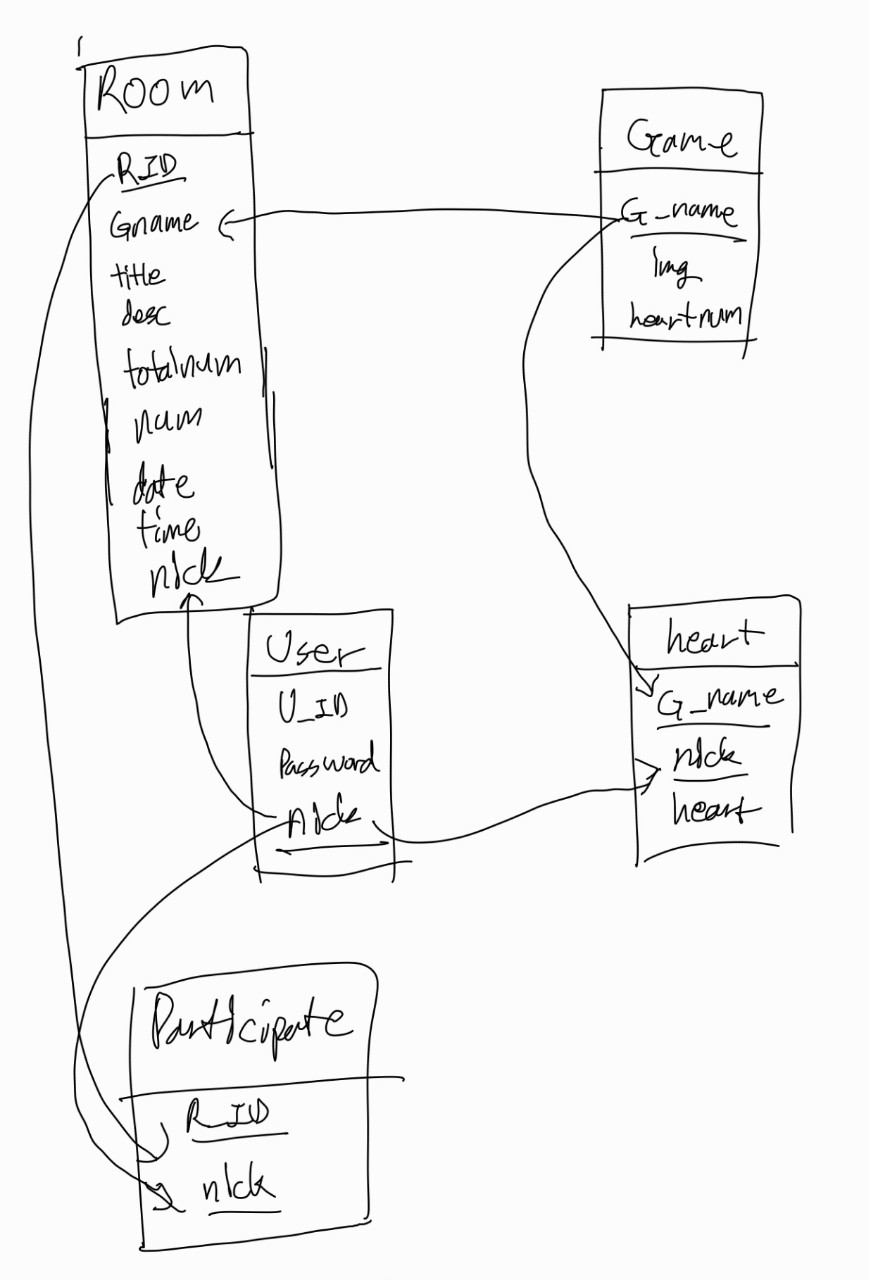 Room
RID
Gname
title
desc
totalnum
num
date
time
nick
Game
G_name
Img
heartnum
User
U_ID
Password
nick
heart
G_name
nick
heart
Participate
R_ID
nick